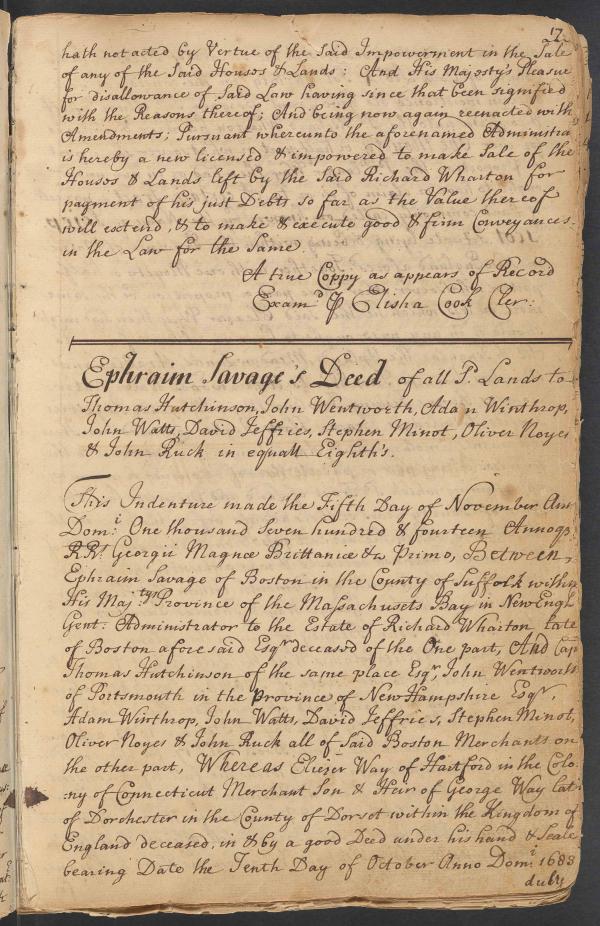 17
hath not acted by Vertue of the Said Impowerment in the Sale
of any of the Said Houses & Lands: And His Majesty's Pleasue
for disallowance of Said Law having since that been signified
with the Reasons thereof; And being now again reenacted with
Amendments; Pursuant whereunto the aforenamed Administra
is hereby a new licensed & impowered to make Sale of the
Houses & Lands left by the Said Richard Wharton for
payment of his just Debts so far as the Value thereof
will extend, & to make & execute good & firm Conveyances
in the Law for the Same.
A true Coppy as appears of Record
Exam.d ⅌ Elisha Cook Cler:
Ephraim Savage's Deed of all P. Lands to
Thomas Hutchinson, John Wentworth, Adam Winthrop,
John Watts, David Jeffries, Stephen Minot, Oliver Noyes
& John Ruck in equall Eighth's.
This Indenture made the Fifth Day of November Ann
Dom.i One thousand Seven hundred & fourteen Annoqz
R.Rs. Georgii Magnæ Brittaniæ &c Primo, Between
Ephraim Savage of Boston in the County of Suffolk within
His Maj.tys Province of the Massachusets Bay in New Engl
Gent: Administrator to the Estate of Richard Wharton late
of Boston aforesaid Esq.r deceased of the One part, And Cap
Thomas Hutchinson of the same place Esq.r, John Wentworth
of Portsmouth in the Province of New Hampshire Esq.r,
Adam Winthrop, John Watts, David Jeffries, Stephen Minot,
Oliver Noyes & John Ruck all of Said Boston Merchants on
the other part, Whereas Eliezer Way of Hartford in the Colo:
:ny of Connecticut Merchant Son & Heir of George Way lat
of Dorchester in the County of Dorset within the Kingdom of
England deceased, in & by a good Deed under his hand & Seale
bearing Date the Tenth Day of October Anno Dom.i 1683
duly